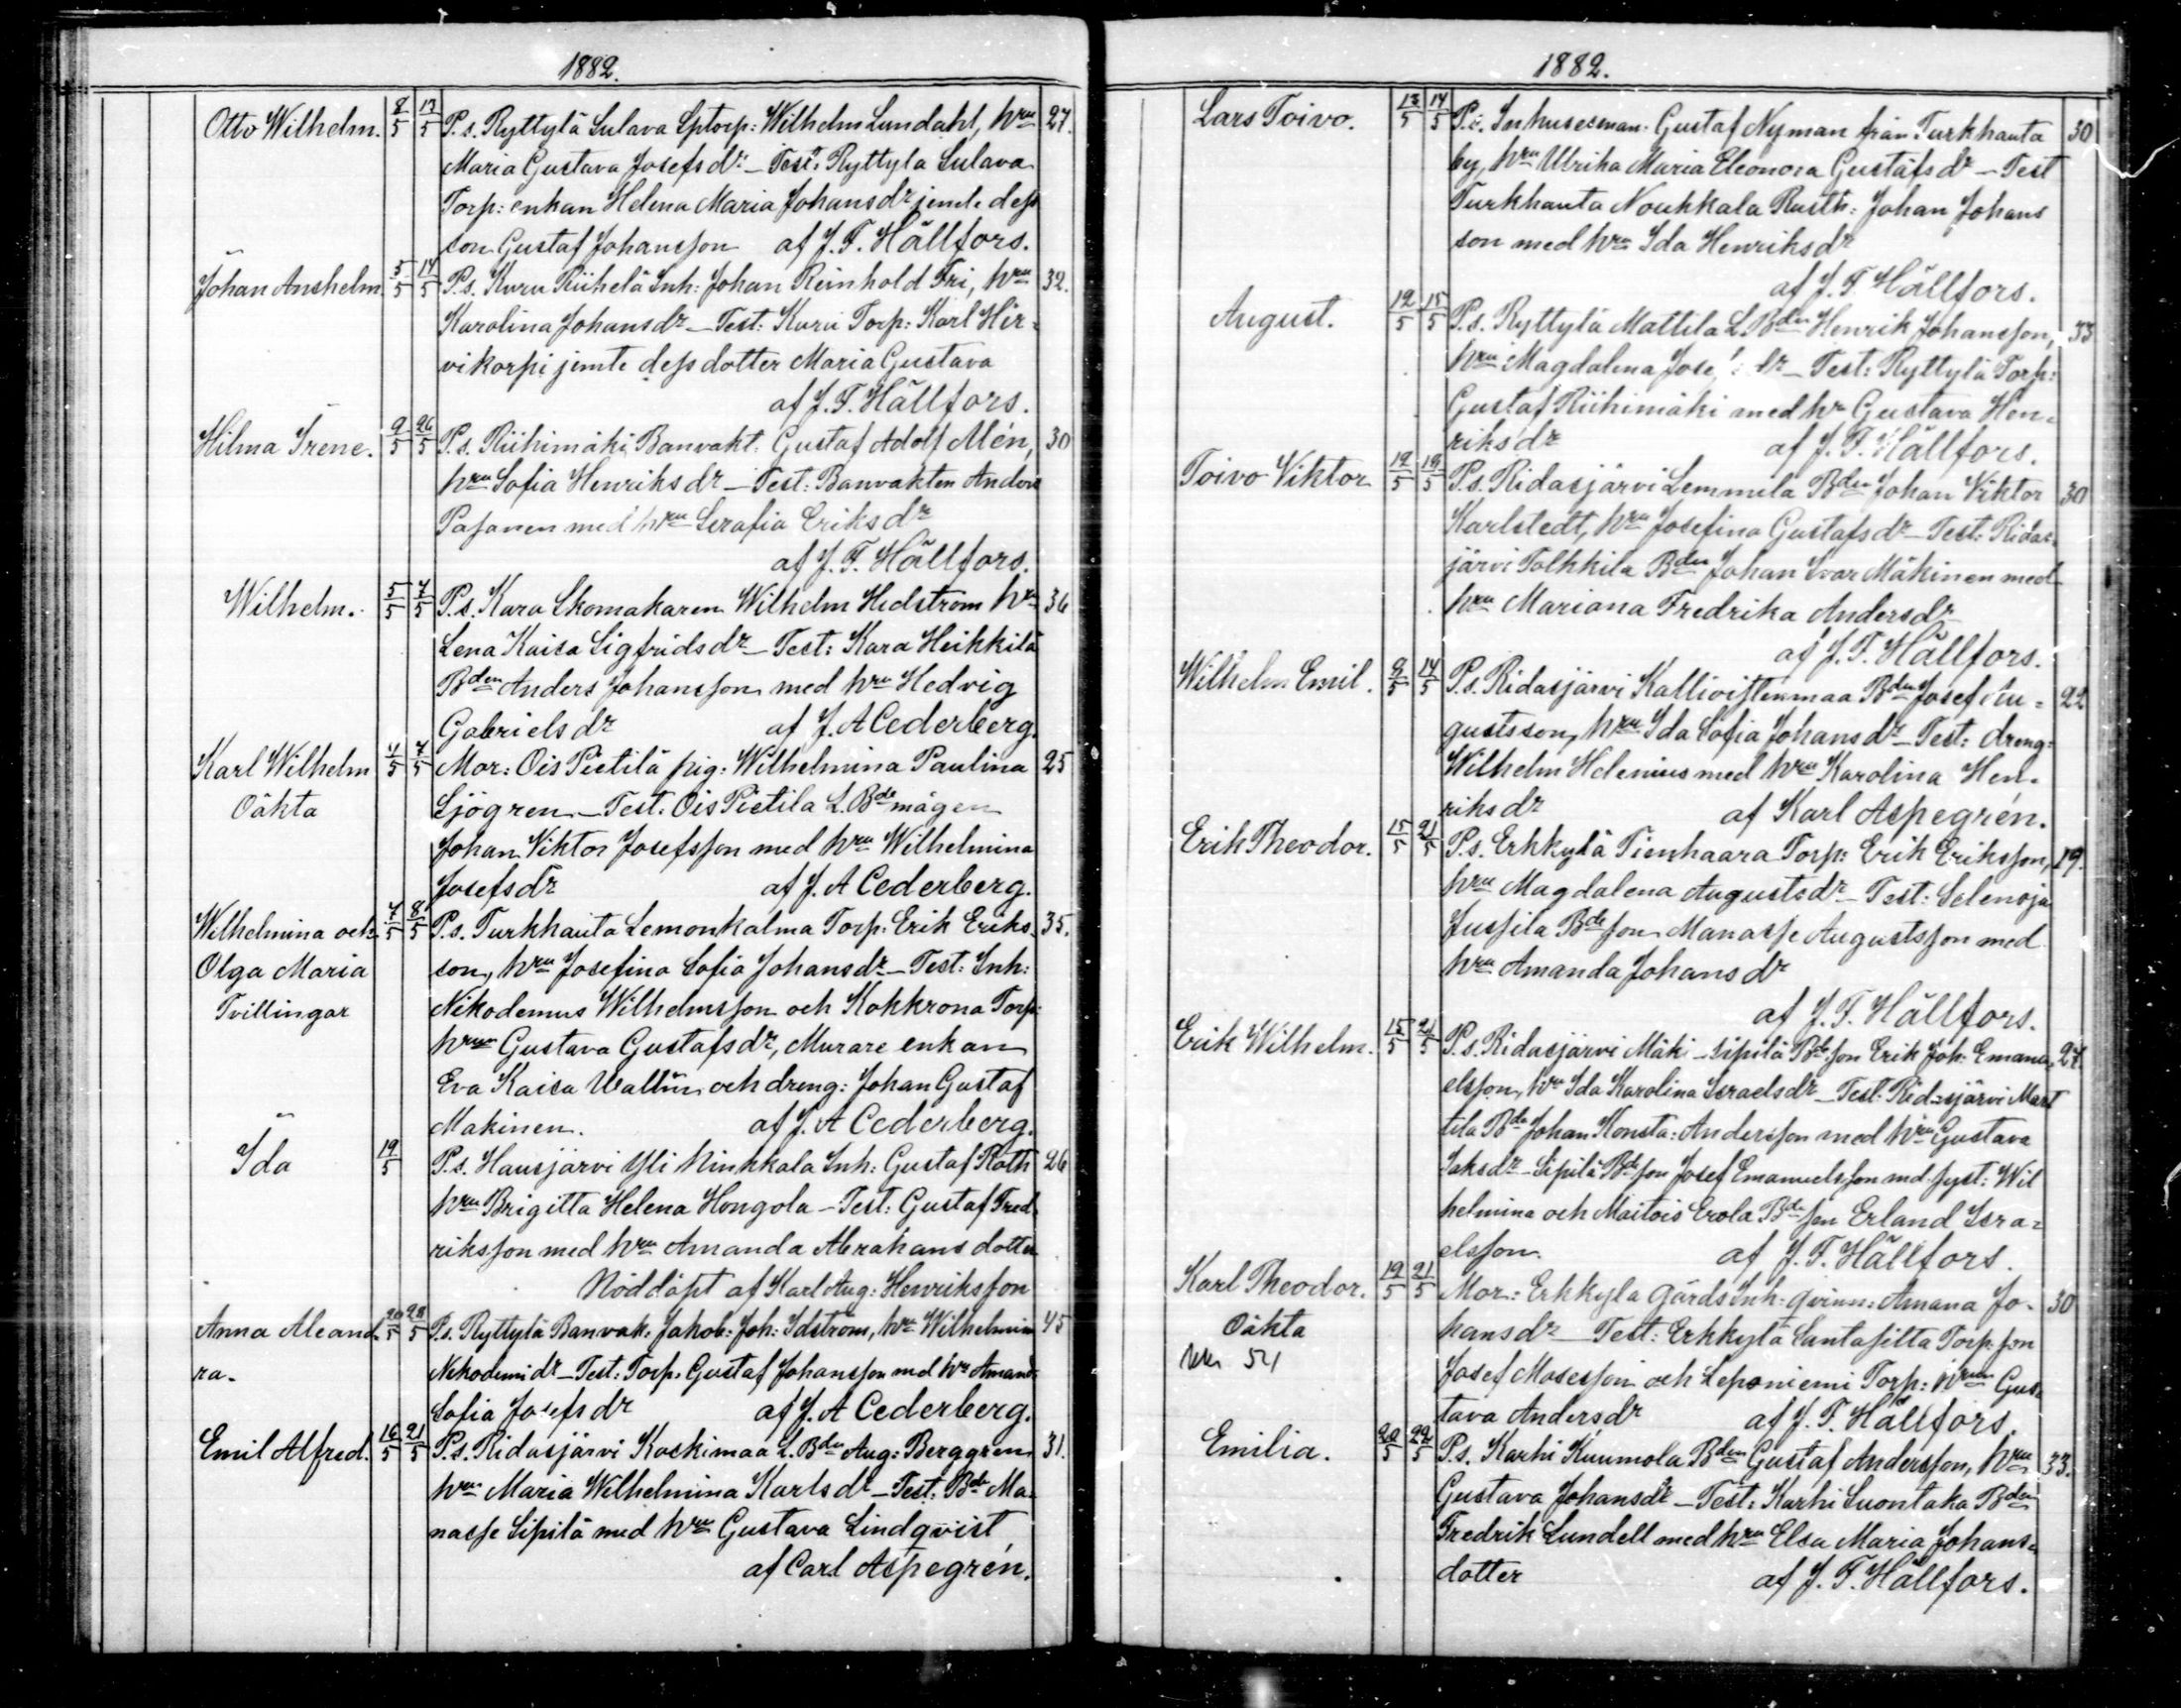 1882.
Otto Wilhelm. 8/5 13/5 P.s. Ryttylä Sulava Sptorp: Wilhelm Lundahl, hru 27.
Maria Gustava Josefsdr – Test: Ryttyla Sulava
Torp: enkan Helena Maria Johansdr jemte dess
son Gustaf Johansson af J. F. Hällfors.
Johan Anshelm 5/5 14/5 P.s. Karu Riihelä Inh: Johan Reinhold Fri, hru 32.
Karolina Johansdr – Test: Kara Torp: Karl Hir=
vikorpi jemte dess dotter Maria Gustava
af J. F. Hällfors.
Hilma Irene. 9/5 26/5 P.s. Riihimäki Banvakt. Gustaf Adolf Alén, 30
hru Sofia Henriksdr – Test: Banvakten Anders
Pasanen med hru Serafia Eriksdr
af J. F. Hällfors.
Wilhelm. 5/5 7/5 P.s. Kara Skomakaren Wilhelm Hedstrom hru 36
Lena Kaisa Sigfridsdr – Test: Kara Heikkilä
Bden Anders Johansson med hru Hedvig
Gabrielsdr af J. A Cederberg.
Karl Wilhelm 4/5 7/5 Mor: Ois Pietilä pig: Wilhelmina Paulina 25
Oäkta Sjögren – Test: Ois Pietila L. Bde mågen
Johan Viktor Josefsson med hru Wilhelmina
Josefsdr af J. A Cederberg.
Wilhelmina och 7/5 8/5 P.s. Turkhauta Lemonkalma Torp: Erik Eriks 35.
Olga Maria son, hru Josefina Sofia Johansdr – Test: Inh:
Tvillingar Nikodemus Wilhelmsson och Kokkrona Torp:
hrun Gustava Gustafsdr, Murare enkan
Eva Kaisa Wallin och dreng: Johan Gustaf
Makinen. af J. A Cederberg.
Ida 19/5 P.s. Hausjärvi Yli Ninkkala Inh: Gustaf Roth 26
hru Brigitta Helena Hongola – Test: Gustaf Fred
riksson med hru Amanda Abrahams dotter
Nöddöpt af Karl Aug: Henriksson
Anna Aleand 20/5 28/5 P.s. Ryttylä Banvak: Jakob: Joh: Idström, hru Wilhelmin 45
ra. Nikodemidr – Test: Torp: Gustaf Johansson med hru Amand
Sofia Josefsdr af J. A Cederberg.
Emil Alfred. 16/5 21/5 P.s. Ridasjärvi Koskimaa L. Bden Aug: Berggren 31.
hru Maria Wilhelmina Karlsdr – Test: Bde Ma=
nasse Sipilä med hru Gustava Lindqvist
af Carl Aspegrén.
1882.
Lars Toivo. 13/5 14/5 P.s. Inhusesman: Gustaf Nyman från Turkhauta 30
by, hru Ulrika Maria Eleonora Gustafsdr – Test
Turkhauta Noukkala Rusth: Johan Johans
son med hru Ida Henriksdr
af J. F. Hällfors.
August. 12/5 15/5 P.s. Ryttylä Mattila L. Bden Henrik Johansson, 33
hru Magdalena Jose dr – Test: Ryttylä Torp:
Gustaf Riihimäki med hru Gustava Hen=
riksdr af J. F. Hällfors.
Toivo Viktor 12/5 19/5 P.s. Ridasjärvi Lemmela Bden Johan Viktor 30
Karlstedt, hru Josefina Gustafsdr – Test: Ridas
järvi Tolkkila Bden Johan Ivar Mäkinen med
hru Mariana Fredrika Andersdr
af J. F. Hällfors.
Wilhelm Emil. 9/5 14/5 P.s. Ridasjärvi Bden Josef Au= 22
gustsson, hru Ida Sofia Johansdr – Test: dreng:
Wilhelm Helenius med hru Karolina Hen=
riksdr af Karl Aspegrén.
Erik Theodor. 15/5 21/5 P.s. Erkkylä Tienhaara Torp: Erik Eriksson, 19.
hru Magdalena Augustsdr – Test: Selenoja
Jussila Bde son Manasse Augustsson med
hru Amanda Johansdr
af J. F. Hällfors.
Erik Wilhelm. 15/5 21/5 P.s. Ridasjärvi Mäki-sipilä Bde son Erik Joh: Emanu 27.
elsson, hru Ida Karolina Israelsdr – Test: Ridasjärvi Mart
tila Bde Johan Konsta: Andersson med hru Gustava
Isaksdr – Sipilä Bde son Josef Emanuelsson md syst: Wil
helmina och Maitois Erola Bde son Erland Isra=
elsson. af J. F. Hällfors.
Karl Theodor. 19/5 21/5 Mor: Erkkyla gårds Inh: qvinn: Amana Jo- 30
Oäkta hansdr – Test: Erkkylä Santasilta Torp: son
54 Josef Mosesson och Leponiemi Torp: hrun Gus
tava Andersdr af J. F. Hällfors
Emilia. 20/5 22/5 P.s. Karhi Kuumola Bden Gustaf Andersson, hru 33.
Gustava Johansdr – Test: Karhi Luontaka Bden
Fredrik Lundell med hru Elsa Maria Johans=
dotter af J. F. Hällfors.